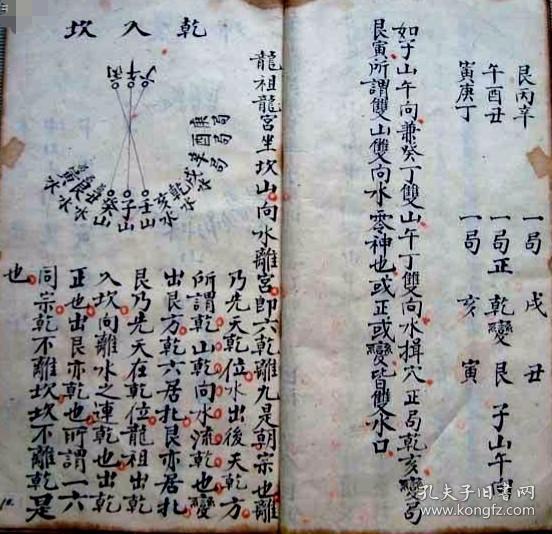 艮丙辛 一局 戌 丑
午酉丑 一局正乾變艮 子山午向
寅庚丁 一局 亥 寅
如子山午向兼癸丁雙山午丁雙向水揖穴正局乾亥變局
艮寅所謂雙山雙向水零神也或正或變皆雙水口
乾入坎
龍祖龍宮坐坎山向水離宮即六乾離九是朝宗也離
乃先天乾位水出後天乾方
所謂乾山乾向水流乾也變
出艮方乾六居北艮亦居北
艮乃先天在乾位龍祖出乾
入坎向離水之連乾也出乾
正也出艮亦乾也所謂一六
同宗乾不離坎坎不離乾是
也
庚局
酉局
辛局
戌水
乾水
亥水
壬山
子山
癸山
艮水
寅水
孔夫子旧书网
www.kongfz.com